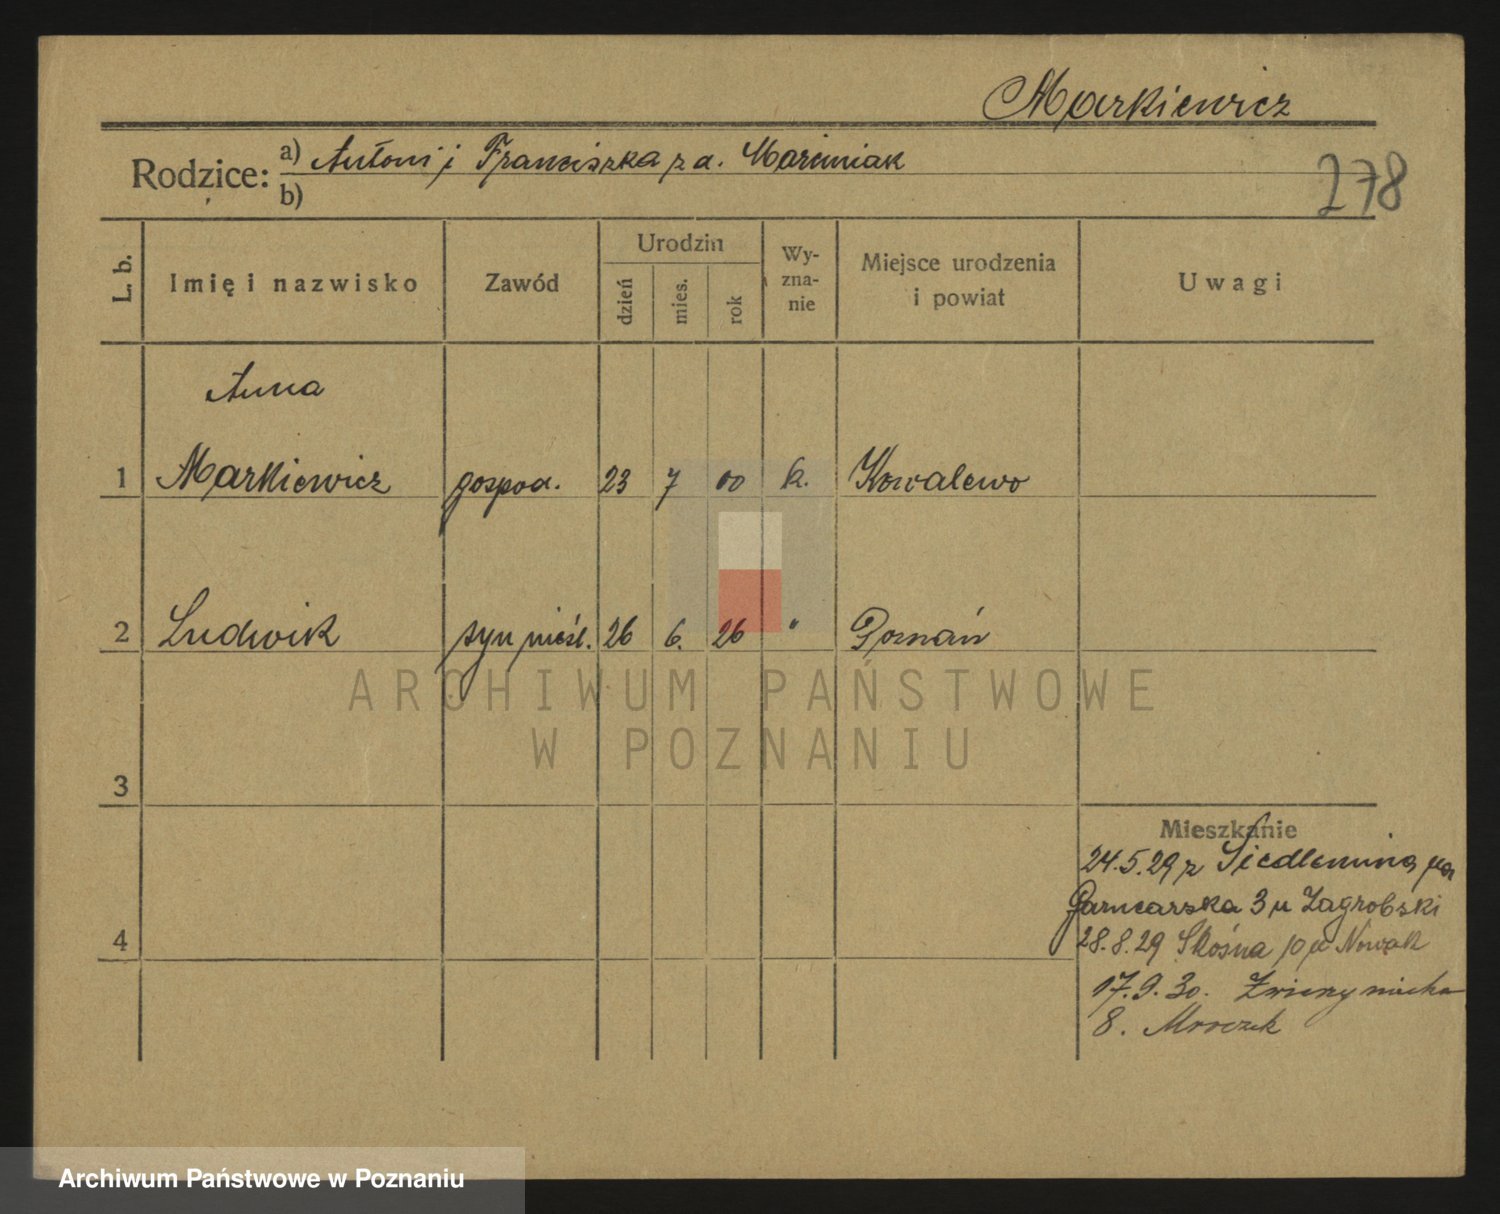 Markiewicz
Rodzice: a) Antoni i Franciszka z d. Marciniak
b)
278
L. b. Imię i nazwisko Zawód Urodzin dzień mies. rok Wy-zna-nie Miejsce urodzenia i powiat Uwagi
Anna
1 Markiewicz gospod. 23 7 00 k. Kowalewo
2 Ludwik syn nieśl. 26 6. 26 " Poznań
ARCHIWUM PAŃSTWOWE
W POZNANIU
3
Mieszkanie
24.5.29 z Siedlemina na
Garncarska 3 u Zagrobski
4
28.8.29 Skośna p u Nowak
17.9.30. Zwierzyniecka
8. Mroczek
Archiwum Państwowe w Poznaniu